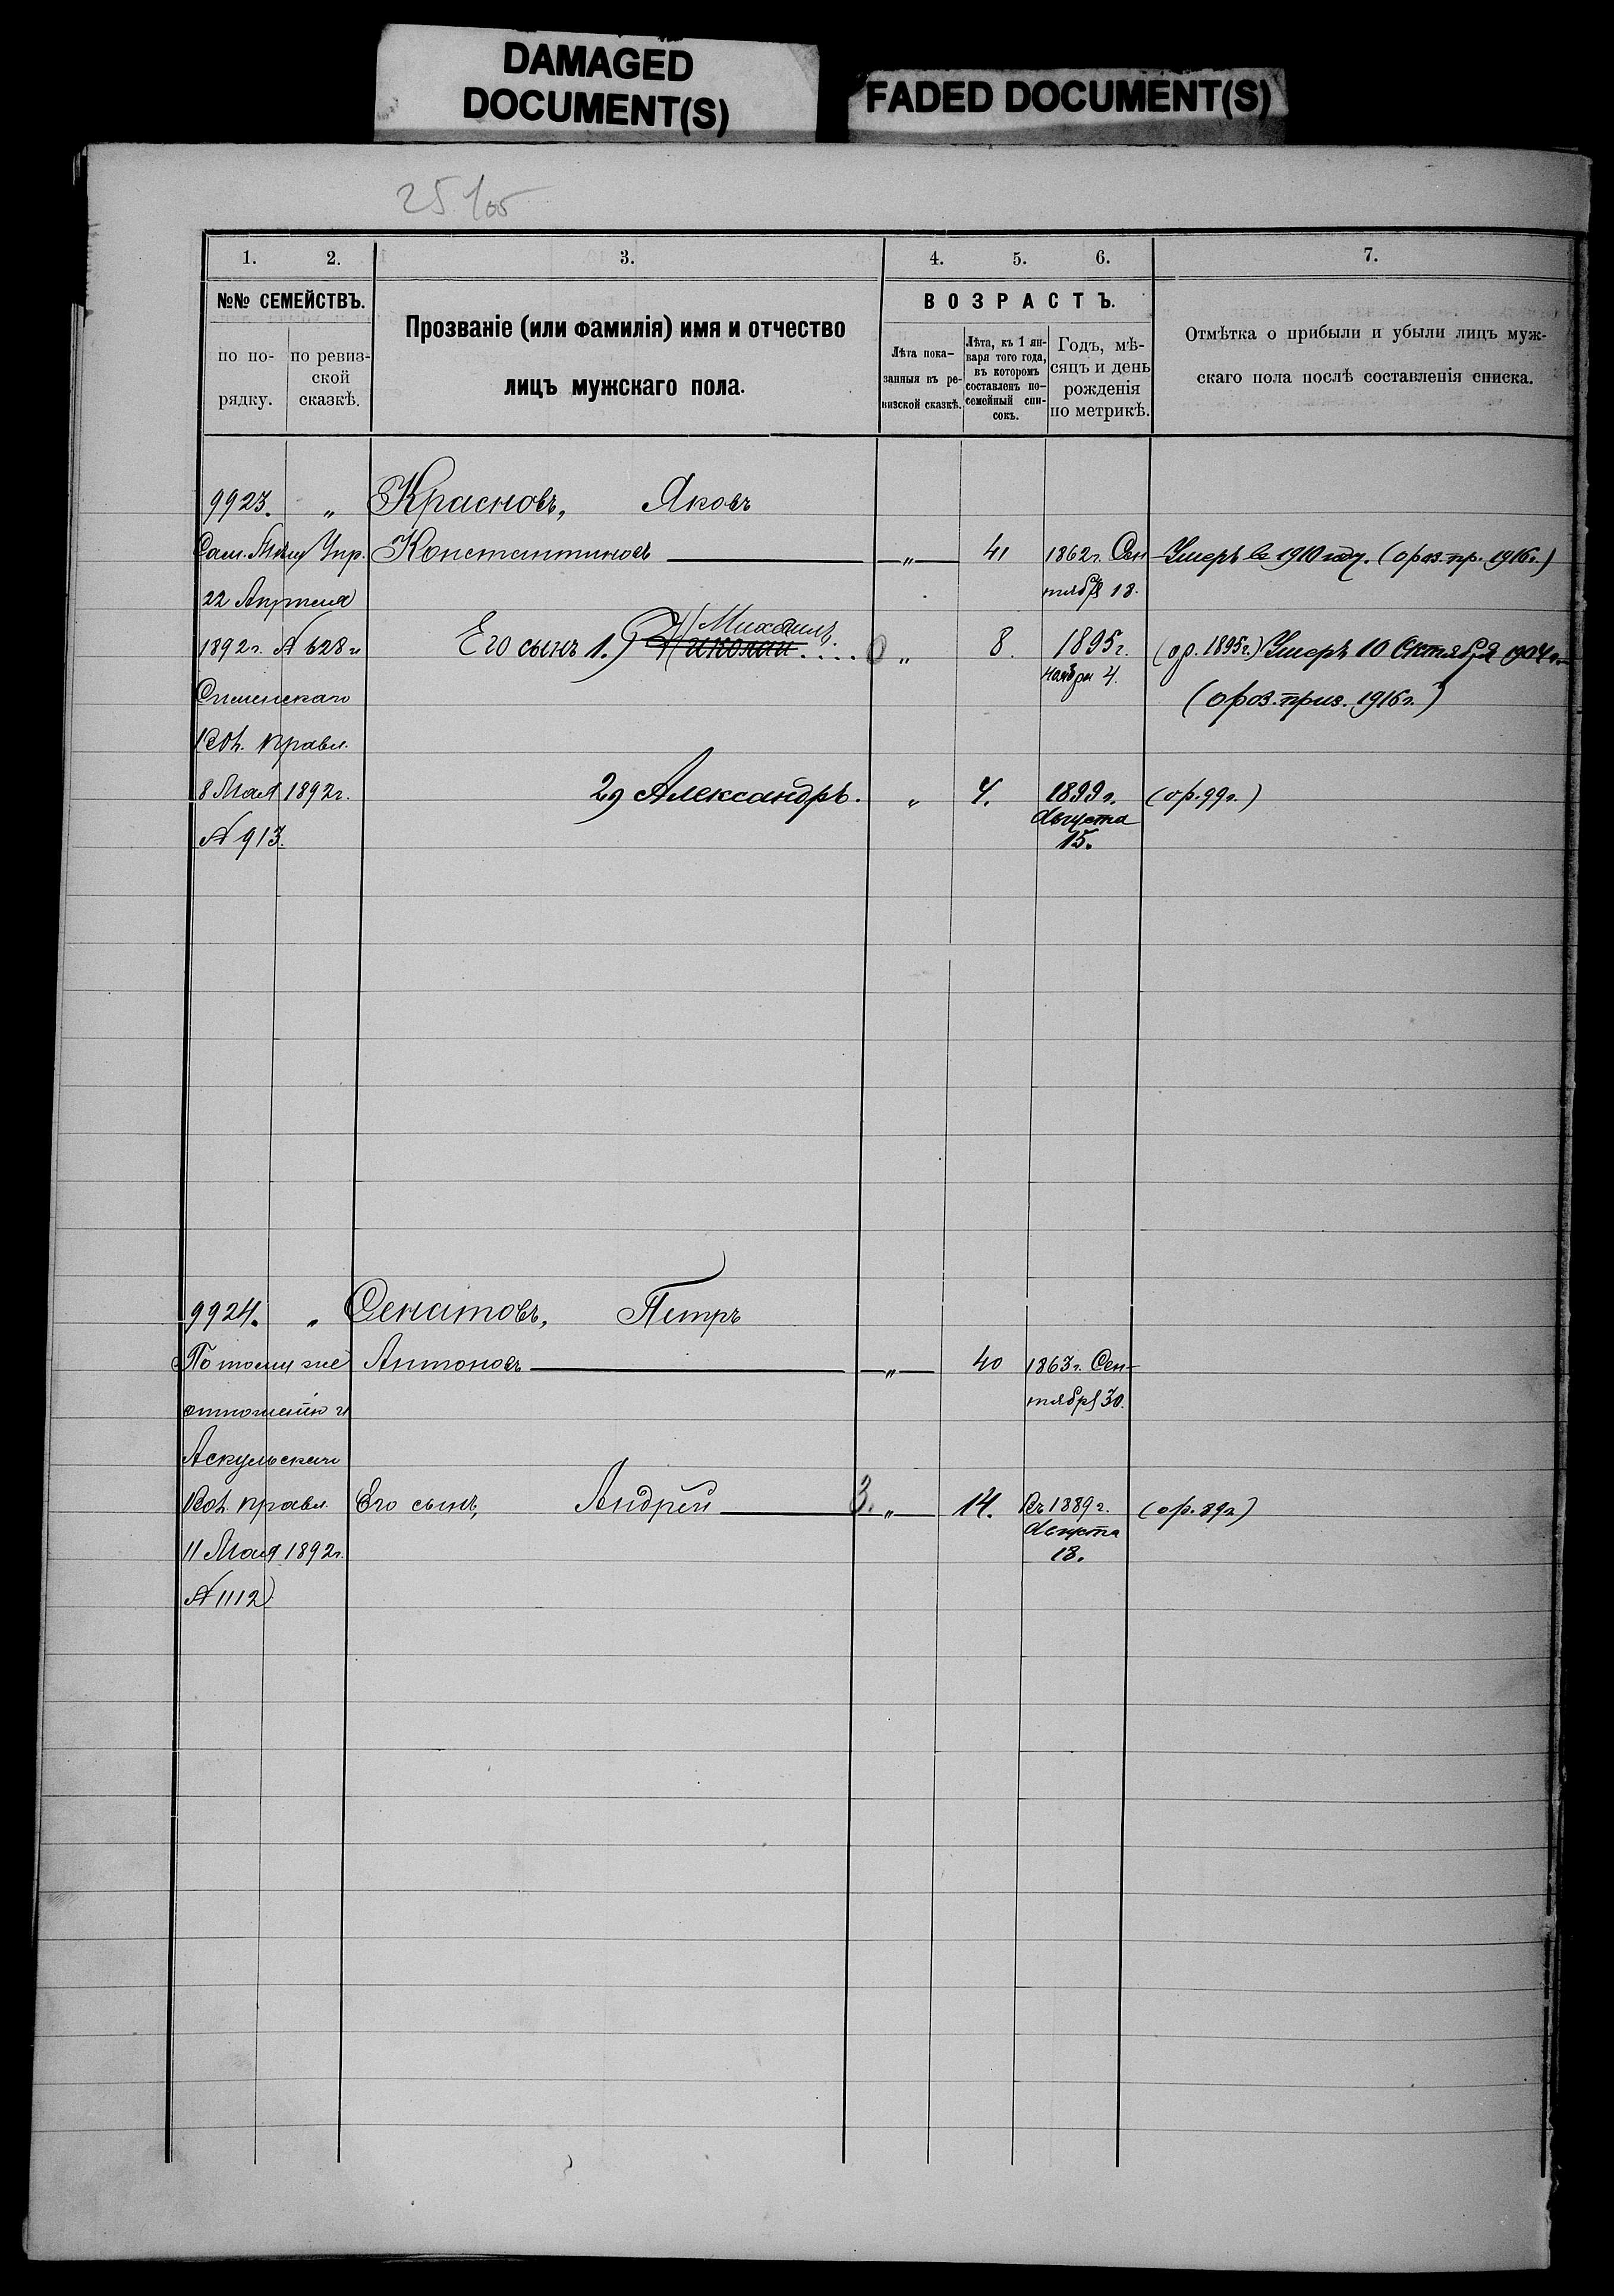 DAMAGED
DOCUMENT(S)
FADED DOCUMENT(S)
1. 2. 3. 4. 5. 6. 7.
№№ СЕМЕЙСТВЪ.
по по-
рядку.
по ревиз-
ской
сказкѣ.
Прозваніе (или фамилія) имя и отчество
лицъ мужскаго пола.
ВОЗРАСТЪ.
Лѣта пока-
занныя въ ре-
визской сказкѣ.
Лѣта, къ 1 ян-
варя того года,
въ которомъ
составленъ по-
семейный спи-
сокъ.
Годъ, мѣ-
сяцъ и день
рожденія
по метрикѣ.
Отмѣтка о прибыли и убыли лицъ муж-
скаго пола послѣ составленія списка.
9923. „ Красновъ, Яковъ
Сам. Мѣщ. Упр. Константиновъ „ 41 1862 г. Сен- Умеръ въ 1910 году. (о роз. пр. 1916 г.)
22 Апрѣля тября 18.
Михаилъ
1892 г. № 628 и Его сынъ 1.) Николай „ 8. 1895 г. (ор. 1895 г.) Умеръ 10 Октября 1904 г.
ноября 4.
(о роз. приз. 1916 г.)
Вол. Правл.
8 Мая 1892 г. 2) Александръ. „ 4. 1899 г. (ор. 99 г.)
Августа
№ 913. 15.
9924. „ Сенатовъ, Петръ
По тому же Антоновъ „ 40 1863 г. Сен-
отношенію и тября 30.
Аскульскаго
Вол. Правл. Его сынъ, Андрей 3. „ 14. въ 1889 г. (ор. 89 г.)
Августа
11 Мая 1892 г. 18.
№ 1112